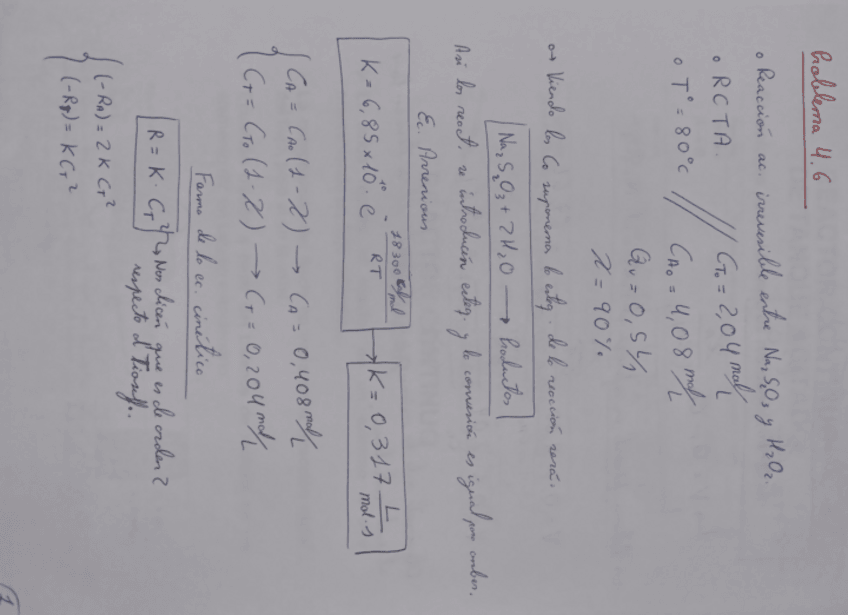 Problema 4.6
o Reacción ac. irreversible entre Na₂S₂O₃ y H₂O₂.
o RCTA. // C_T₀ = 2,04 mol/L
o T° = 80°C C_A₀ = 4,08 mol/L
Q_v = 0,5 L/s
χ = 90%
↦ Viendo las C₀ suponemos la esteq. de la reacción será:
Na₂S₂O₃ + 2H₂O ⟶ Productos
Así los react. se introducían esteq. y la conversión es igual para ambos.
Ec. Arrenious
K = 6,85x10¹⁰ · e^(-18300 cal/mol / RT) ⟶ K = 0,317 L/mol·s
{ C_A = C_A₀ (1 - χ) ⟶ C_A = 0,408 mol/L
C_T = C_T₀ (1 - χ) ⟶ C_T = 0,204 mol/L
Forma de la ec. cinética
R = K · C_T² → Nos dicen que es de orden 2
respecto al Tiosulf.
{ (-R_A) = 2 K C_T²
(-R_T) = K C_T²
1